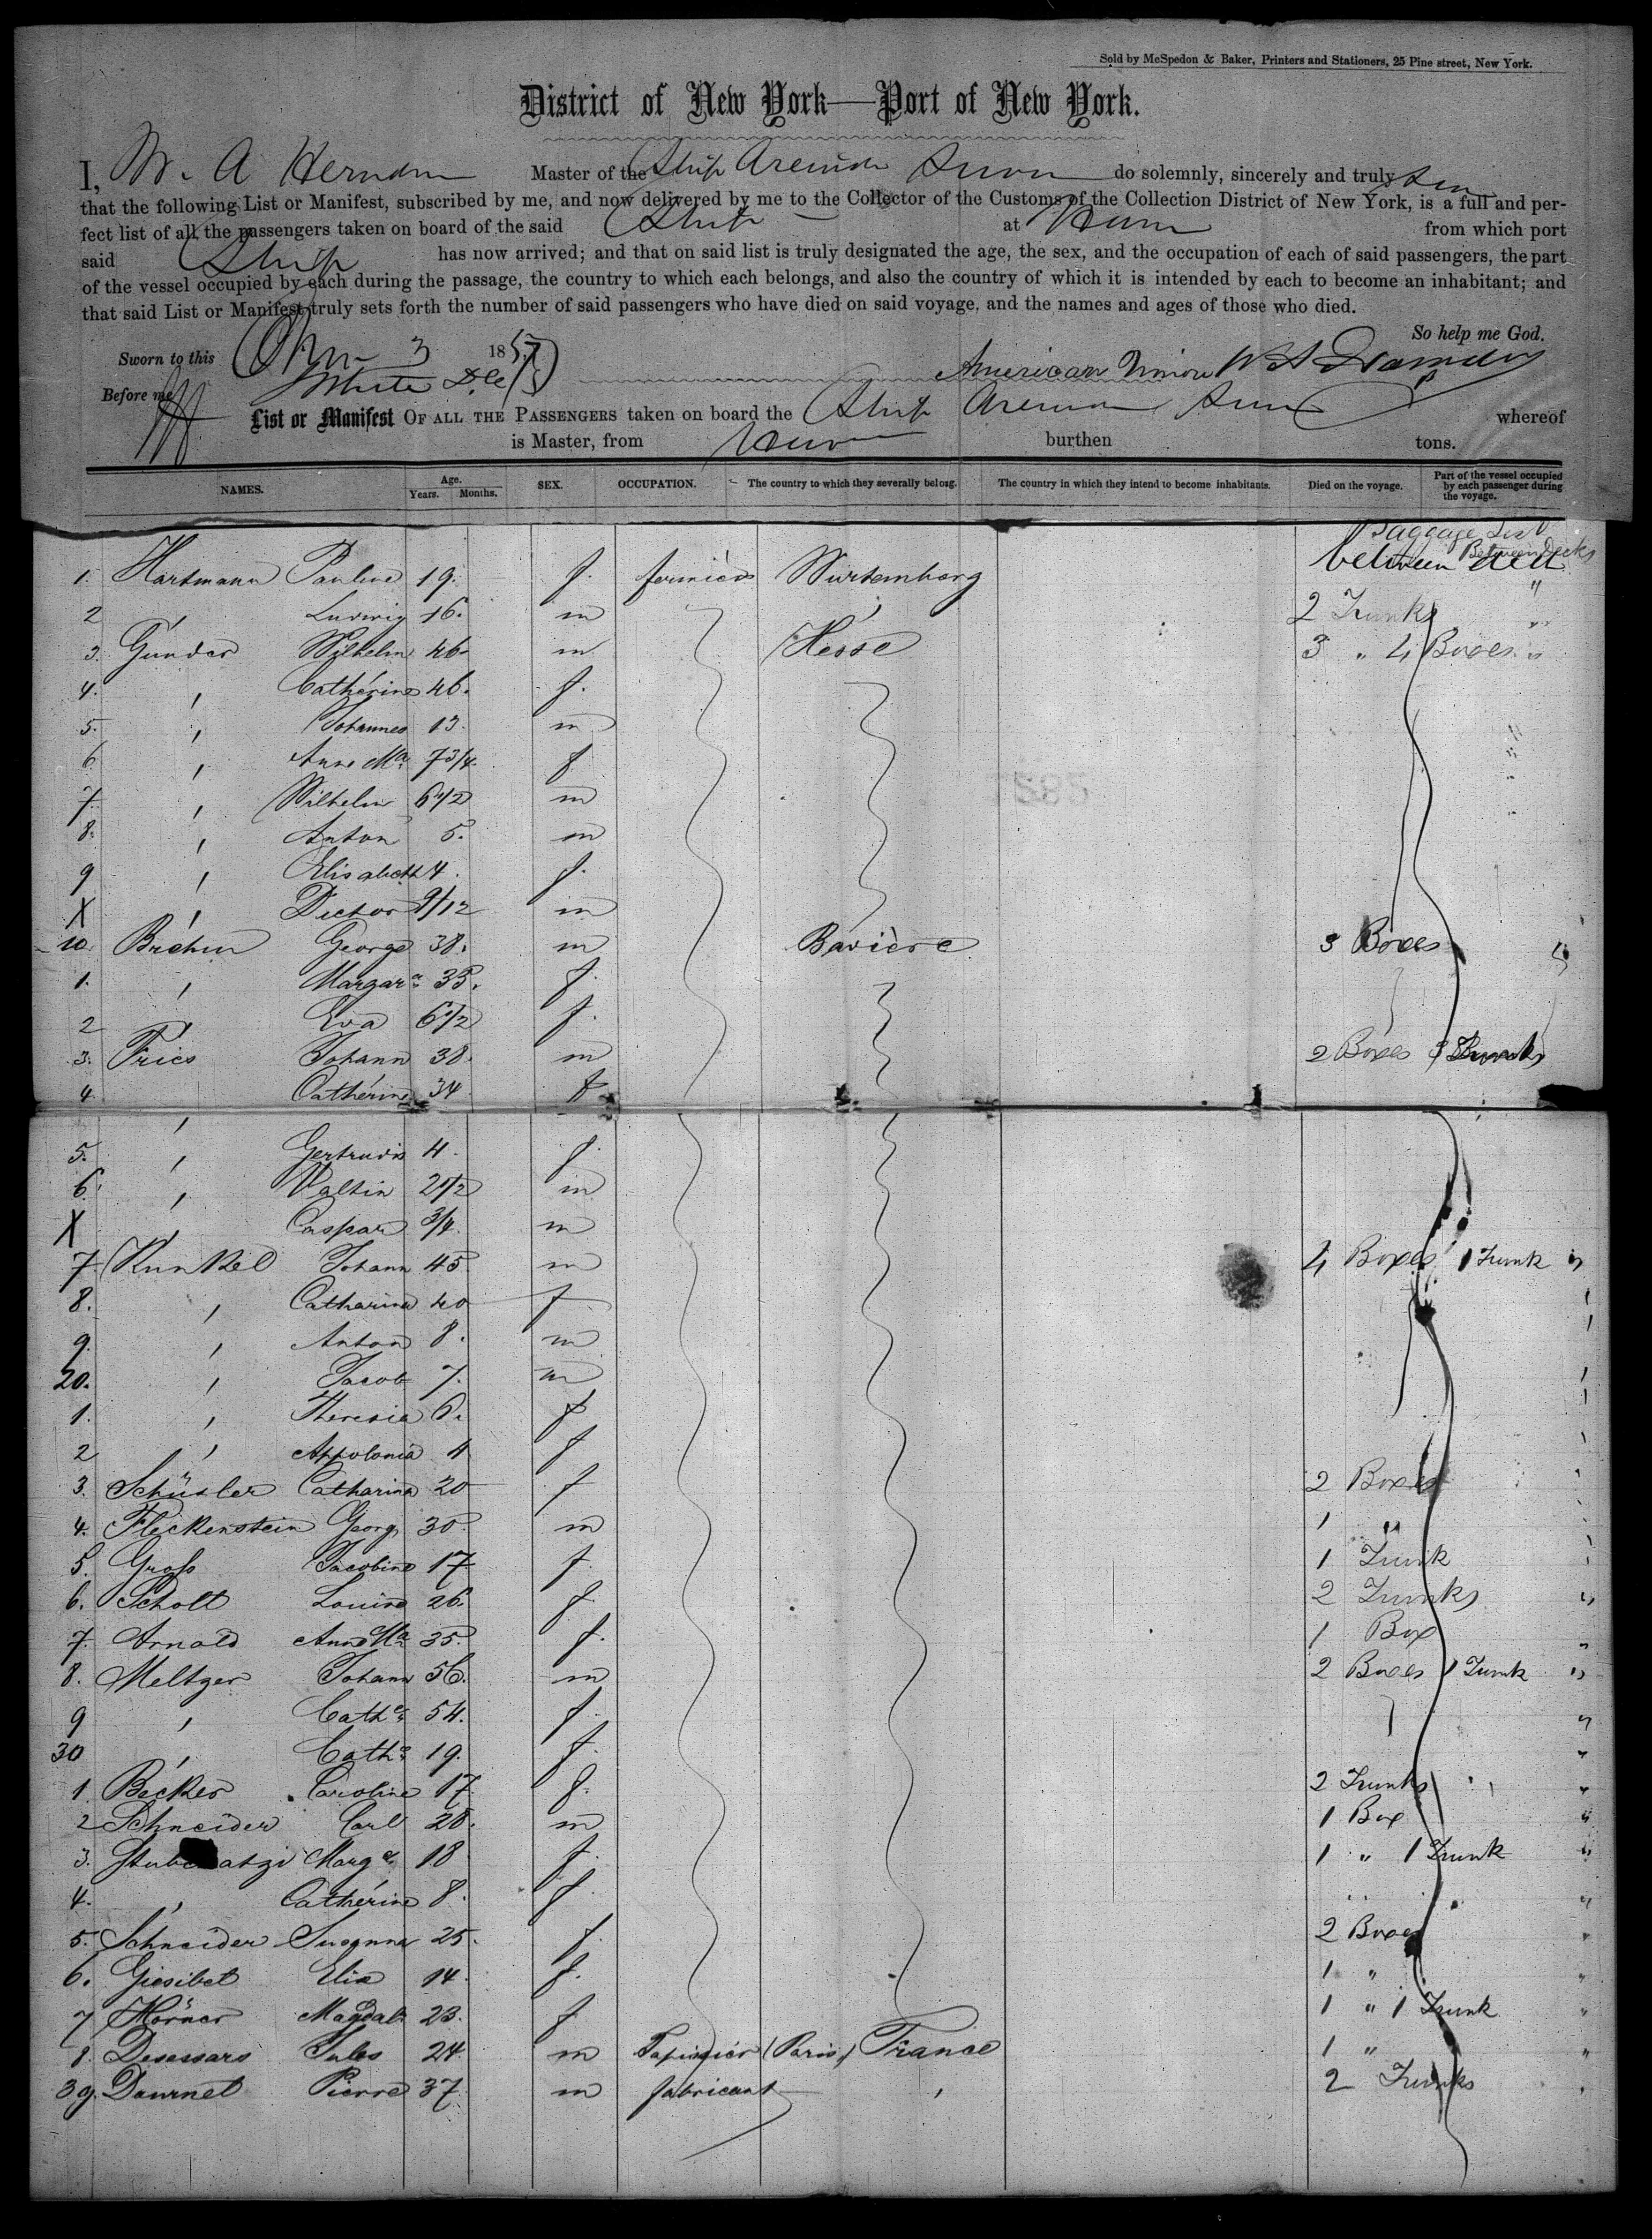 Sold by McSpedon & Baker, Printers and Stationers, 25 Pine street, New York.
District of New York—Port of New York.
I, W. A Herndon Master of the Ship American Union do solemnly, sincerely and truly
that the following List or Manifest, subscribed by me, and now delivered by me to the Collector of the Customs of the Collection District of New York, is a full and per-
fect list of all the passengers taken on board of the said Ship at Havre from which port
said Ship has now arrived; and that on said list is truly designated the age, the sex, and the occupation of each of said passengers, the part
of the vessel occupied by each during the passage, the country to which each belongs, and also the country of which it is intended by each to become an inhabitant; and
that said List or Manifest truly sets forth the number of said passengers who have died on said voyage, and the names and ages of those who died.
So help me God.
Sworn to this 3 1857
Before me American Union
List or Manifest OF ALL THE PASSENGERS taken on board the Ship American Union whereof
is Master, from Havre burthen tons.
NAMES. Age. Years. Months. SEX. OCCUPATION. The country to which they severally belong. The country in which they intend to become inhabitants. Died on the voyage. Part of the vessel occupied by each passenger during the voyage.
Baggage List
Between Decks
1. Hartmann Pauline 19. f. fermiers Würtemberg between deck
2 , Ludwig 16. m , 2 Trunks "
3. Gunder Wilhelm 46 m Hesse 3 " 4 Boxes "
4. , Cathérine 46. f.
5. , Johannes 13. m
6 , Anne Ma 7 3/4 f
7 , Wilhelm 6 1/2 m
8. , Anton 5. m
9 , Elisabeth 4. f.
X , 9/12 m
10. Brehm George 38. m Bavière 3 Boxes "
1. , Margar a 35. f.
2 , Eva 6 1/2 f.
3. Fries Johann 38. m 2 Boxes 3 Trunks
4. , Cathérine 34 f
5. , Gertrudis 4. f.
6. , Valtin 2 1/2 m
X , Caspar 3/4 m
7 Kunkel Johann 45 m 4 Boxes 1 Trunk "
8. , Catharina 40 f
9. , Anton 8. m
20. , Jacob 7. m
1. , Theresia 6. f
2 , Appolonia 4 f
3. Schüsler Catharina 20 f 2 Boxes
4. Fleckenstein Georg 30. m 1 "
5. Gross Jacobine 17 f. 1 Trunk
6. Scholl Louise 26. f. 2 Trunks "
7. Arnold Anne Ma 35. f. 1 Box "
8. Meltzer Johann 56. m 2 Boxes 1 Trunk "
9 , Cath e 54. f. "
30 , Cath e 19. f. "
1. Becker Caroline 17 f. 2 Trunks "
2 Schneider Carl 28. m 1 Box "
3. Marg e 18 f. 1 " 1 Trunk "
4. , Cathérine 8. f "
5. Schneider Susanna 25. f 2 Boxes "
6. Giesibel Elis 14. f. 1 " "
7 Hörner Magdal 23. f 1 " 1 Trunk "
8. Desessars Jules 24 m Tapissier (Paris) France 1 " "
39. Dournel Pierre 37 m fabricant , 2 Trunks "